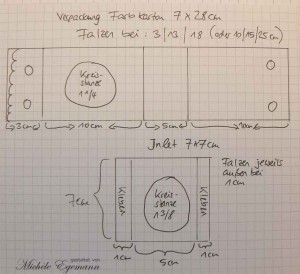 Verpackung Farbkarton 7 x 28cm
Falzen bei: 3 | 13 | 18 (oder 10/15/25cm)
Kreis-
stanze
1 3/4
3cm
10cm
5cm
10cm
Inlet 7x7cm
Falzen jeweils
außen bei
1cm
7cm
Kleben
Kreis-
stanze
1 3/8
Kleben
1cm
5cm
1cm
gestaltet von
Michele Egemann